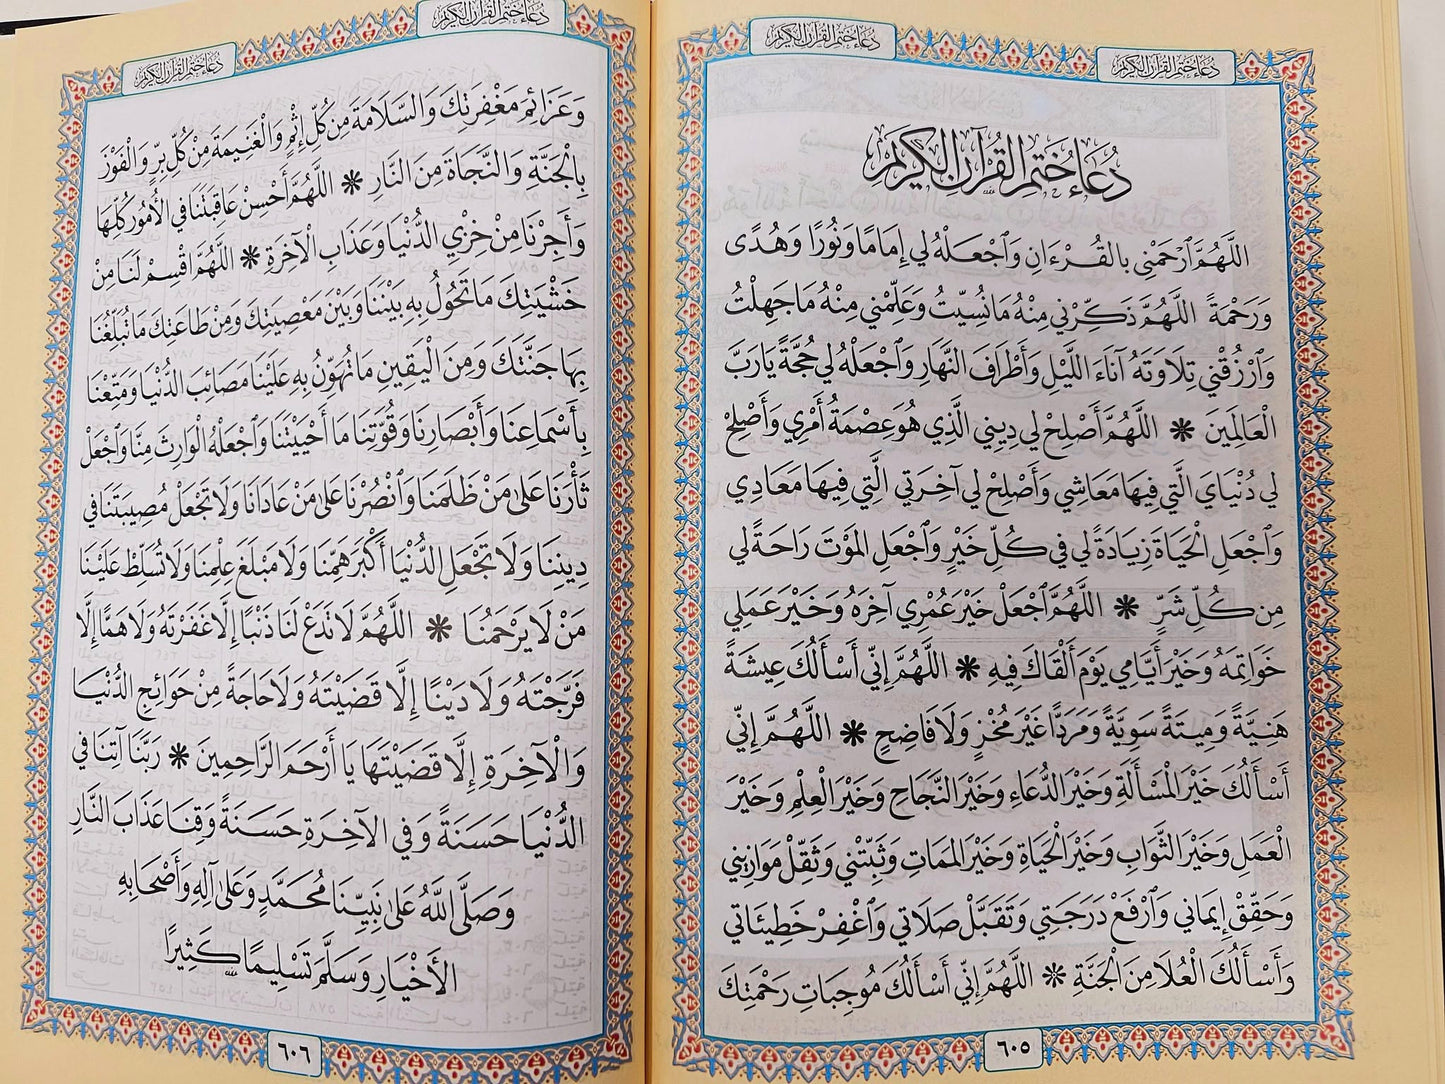 دُعَاءُ خَتْمِ الْقُرْآنِ الْكَرِيمِ
دُعَاءُ خَتْمِ الْقُرْآنِ الْكَرِيمِ
دُعَاءُ خَتْمِ الْقُرْآنِ الْكَرِيمِ
اللَّهُمَّ ٱرْحَمْنِي بِالقُرْءَانِ وَٱجْعَلْهُ لِي إِمَامًا وَنُورًا وَهُدًى
وَرَحْمَةً اللَّهُمَّ ذَكِّرْنِي مِنْهُ مَا نُسِّيتُ وَعَلِّمْنِي مِنْهُ مَا جَهِلْتُ
وَٱرْزُقْنِي تِلَاوَتَهُ آنَاءَ اللَّيْلِ وَأَطْرَافَ النَّهَارِ وَٱجْعَلْهُ لِي حُجَّةً يَارَبَّ
الْعَالَمِينَ * اللَّهُمَّ أَصْلِحْ لِي دِينِي الَّذِي هُوَ عِصْمَةُ أَمْرِي وَأَصْلِحْ
لِي دُنْيَايَ الَّتِي فِيهَا مَعَاشِي وَأَصْلِحْ لِي آخِرَتِي الَّتِي فِيهَا مَعَادِي
وَٱجْعَلِ الْحَيَاةَ زِيَادَةً لِي فِي كُلِّ خَيْرٍ وَٱجْعَلِ المَوْتَ رَاحَةً لِي
مِن كُلِّ شَرٍّ * اللَّهُمَّ ٱجْعَلْ خَيْرَ عُمْرِي آخِرَهُ وَخَيْرَ عَمَلِي
خَوَاتِمَهُ وَخَيْرَ أَيَّامِي يَوْمَ أَلْقَاكَ فِيهِ * اللَّهُمَّ إِنِّي أَسْأَلُكَ عِيشَةً
هَنِيَّةً وَمِيتَةً سَوِيَّةً وَمَرَدًّا غَيْرَ مُخْزٍ وَلَا فَاضِحٍ * اللَّهُمَّ إِنِّي
أَسْأَلُكَ خَيْرَ المَسْأَلَةِ وَخَيْرَ الدُّعَاءِ وَخَيْرَ النَّجَاحِ وَخَيْرَ الْعِلْمِ وَخَيْرَ
الْعَمَلِ وَخَيْرَ الثَّوَابِ وَخَيْرَ الْحَيَاةِ وَخَيْرَ المَمَاتِ وَثَبِّتْنِي وَثَقِّلْ مَوَازِينِي
وَحَقِّقْ إِيمَانِي وَٱرْفَعْ دَرَجَتِي وَتَقَبَّلْ صَلَاتِي وَٱغْفِرْ خَطِيئَاتِي
وَأَسْأَلُكَ الْعُلَا مِنَ الْجَنَّةِ * اللَّهُمَّ إِنِّي أَسْأَلُكَ مُوجِبَاتِ رَحْمَتِكَ
٦٠٥
دُعَاءُ خَتْمِ الْقُرْآنِ الْكَرِيمِ
دُعَاءُ خَتْمِ الْقُرْآنِ الْكَرِيمِ
وَعَزَائِمِ مَغْفِرَتِكَ وَالسَّلَامَةَ مِن كُلِّ إِثْمٍ وَالْغَنِيمَةَ مِنْ كُلِّ بِرٍّ وَالْفَوْزَ
بِالْجَنَّةِ وَالنَّجَاةَ مِنَ النَّارِ * اللَّهُمَّ أَحْسِنْ عَاقِبَتَنَا فِي الْأُمُورِ كُلِّهَا
وَأَجِرْنَا مِنْ خِزْيِ الدُّنْيَا وَعَذَابِ الْآخِرَةِ * اللَّهُمَّ اقْسِمْ لَنَا مِنْ
خَشْيَتِكَ مَا تَحُولُ بِهِ بَيْنَنَا وَبَيْنَ مَعْصِيَتِكَ وَمِنْ طَاعَتِكَ مَا تُبَلِّغُنَا
بِهَا جَنَّتَكَ وَمِنَ الْيَقِينِ مَا تُهَوِّنُ بِهِ عَلَيْنَا مَصَائِبَ الدُّنْيَا وَمَتِّعْنَا
بِأَسْمَاعِنَا وَأَبْصَارِنَا وَقُوَّتِنَا مَا أَحْيَيْتَنَا وَٱجْعَلْهُ الْوَارِثَ مِنَّا وَٱجْعَلْ
ثَأْرَنَا عَلَى مَنْ ظَلَمَنَا وَٱنْصُرْنَا عَلَى مَنْ عَادَانَا وَلَا تَجْعَلْ مُصِيبَتَنَا فِي
دِينِنَا وَلَا تَجْعَلِ الدُّنْيَا أَكْبَرَ هَمِّنَا وَلَا مَبْلَغَ عِلْمِنَا وَلَا تُسَلِّطْ عَلَيْنَا
مَنْ لَا يَرْحَمُنَا * اللَّهُمَّ لَا تَدَعْ لَنَا ذَنْبًا إِلَّا غَفَرْتَهُ وَلَا هَمًّا إِلَّا
فَرَّجْتَهُ وَلَا دَيْنًا إِلَّا قَضَيْتَهُ وَلَا حَاجَةً مِنْ حَوَائِجِ الدُّنْيَا
وَالْآخِرَةِ إِلَّا قَضَيْتَهَا يَا أَرْحَمَ الرَّاحِمِينَ * رَبَّنَا آتِنَا فِي
الدُّنْيَا حَسَنَةً وَفِي الآخِرَةِ حَسَنَةً وَقِنَا عَذَابَ النَّارِ
وَصَلَّى اللَّهُ عَلَى نَبِيِّنَا مُحَمَّدٍ وَعَلَى آلِهِ وَأَصْحَابِهِ
الأَخْيَارِ وَسَلَّمَ تَسْلِيمًا كَثِيرًا
٦٠٦